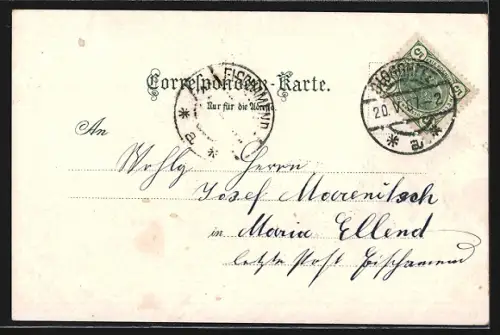 Correspondenz-Karte.
Nur für die Adresse.
FISCHAMEND
* a *
20. V. 97
* a *
5
An
Wohlg Herrn
Josef Maerenitsch
in Maria Ellend
letzte Post Fischamend